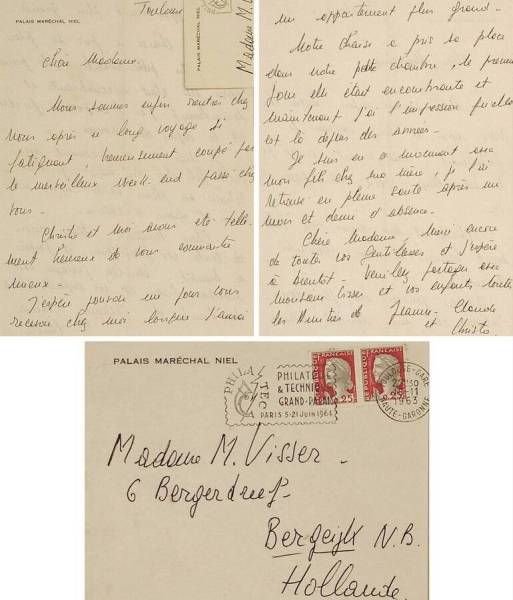 Toulouse
PALAIS MARÉCHAL NIEL
Madame M.
Chère Madame,
Nous sommes enfin rentrés chez
nous après un long voyage si
fatiguant, heureusement coupé par
le merveilleux week-end passé chez
vous.
Christo et moi avons été telle-
ment heureux de vous connaître
mieux.
J'espère pouvoir un jour vous
recevoir chez moi lorsque j'aurai
un appartement plus grand.
Notre Chaise a pris sa place
dans notre petite chambre, le premier
jour elle était encombrante et
maintenant j'ai l'impression qu'elle
est là depuis des années.
Je suis en ce moment avec
mon fils chez ma mère, je l'ai
retrouvé en pleine santé après un
mois et demi d'absence.
Chère Madame, Merci encore
de toutes vos gentillesses et j'espère
à bientôt. Veuillez partager avec
monsieur Visser et vos enfants toutes
les Amitiés de Jeanne-Claude
et Christo
PALAIS MARÉCHAL NIEL
PHILATEC
PHILATELIE
& TECHNIQUE
GRAND-PALAIS
PARIS 5-21 JUIN 1964
REPUBLIQUE FRANÇAISE
0.25
REPUBLIQUE FRANÇAISE
0.25
TOULOUSE-GARE
1963
HAUTE-GARONNE
Madame M. Visser
6 Bergerdreef
Bergeijk N.B.
Hollande